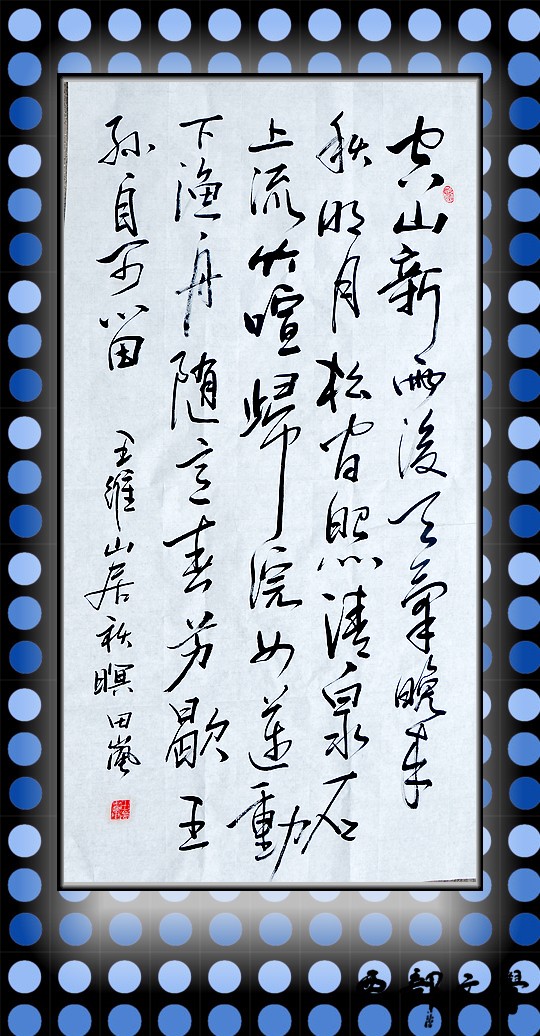 空山新雨後天氣晚来
秋明月松间照清泉石
上流竹喧歸浣女蓮動
下渔舟随意春芳歇王
孙自可留
王維山居秋暝田嵐
西部文學